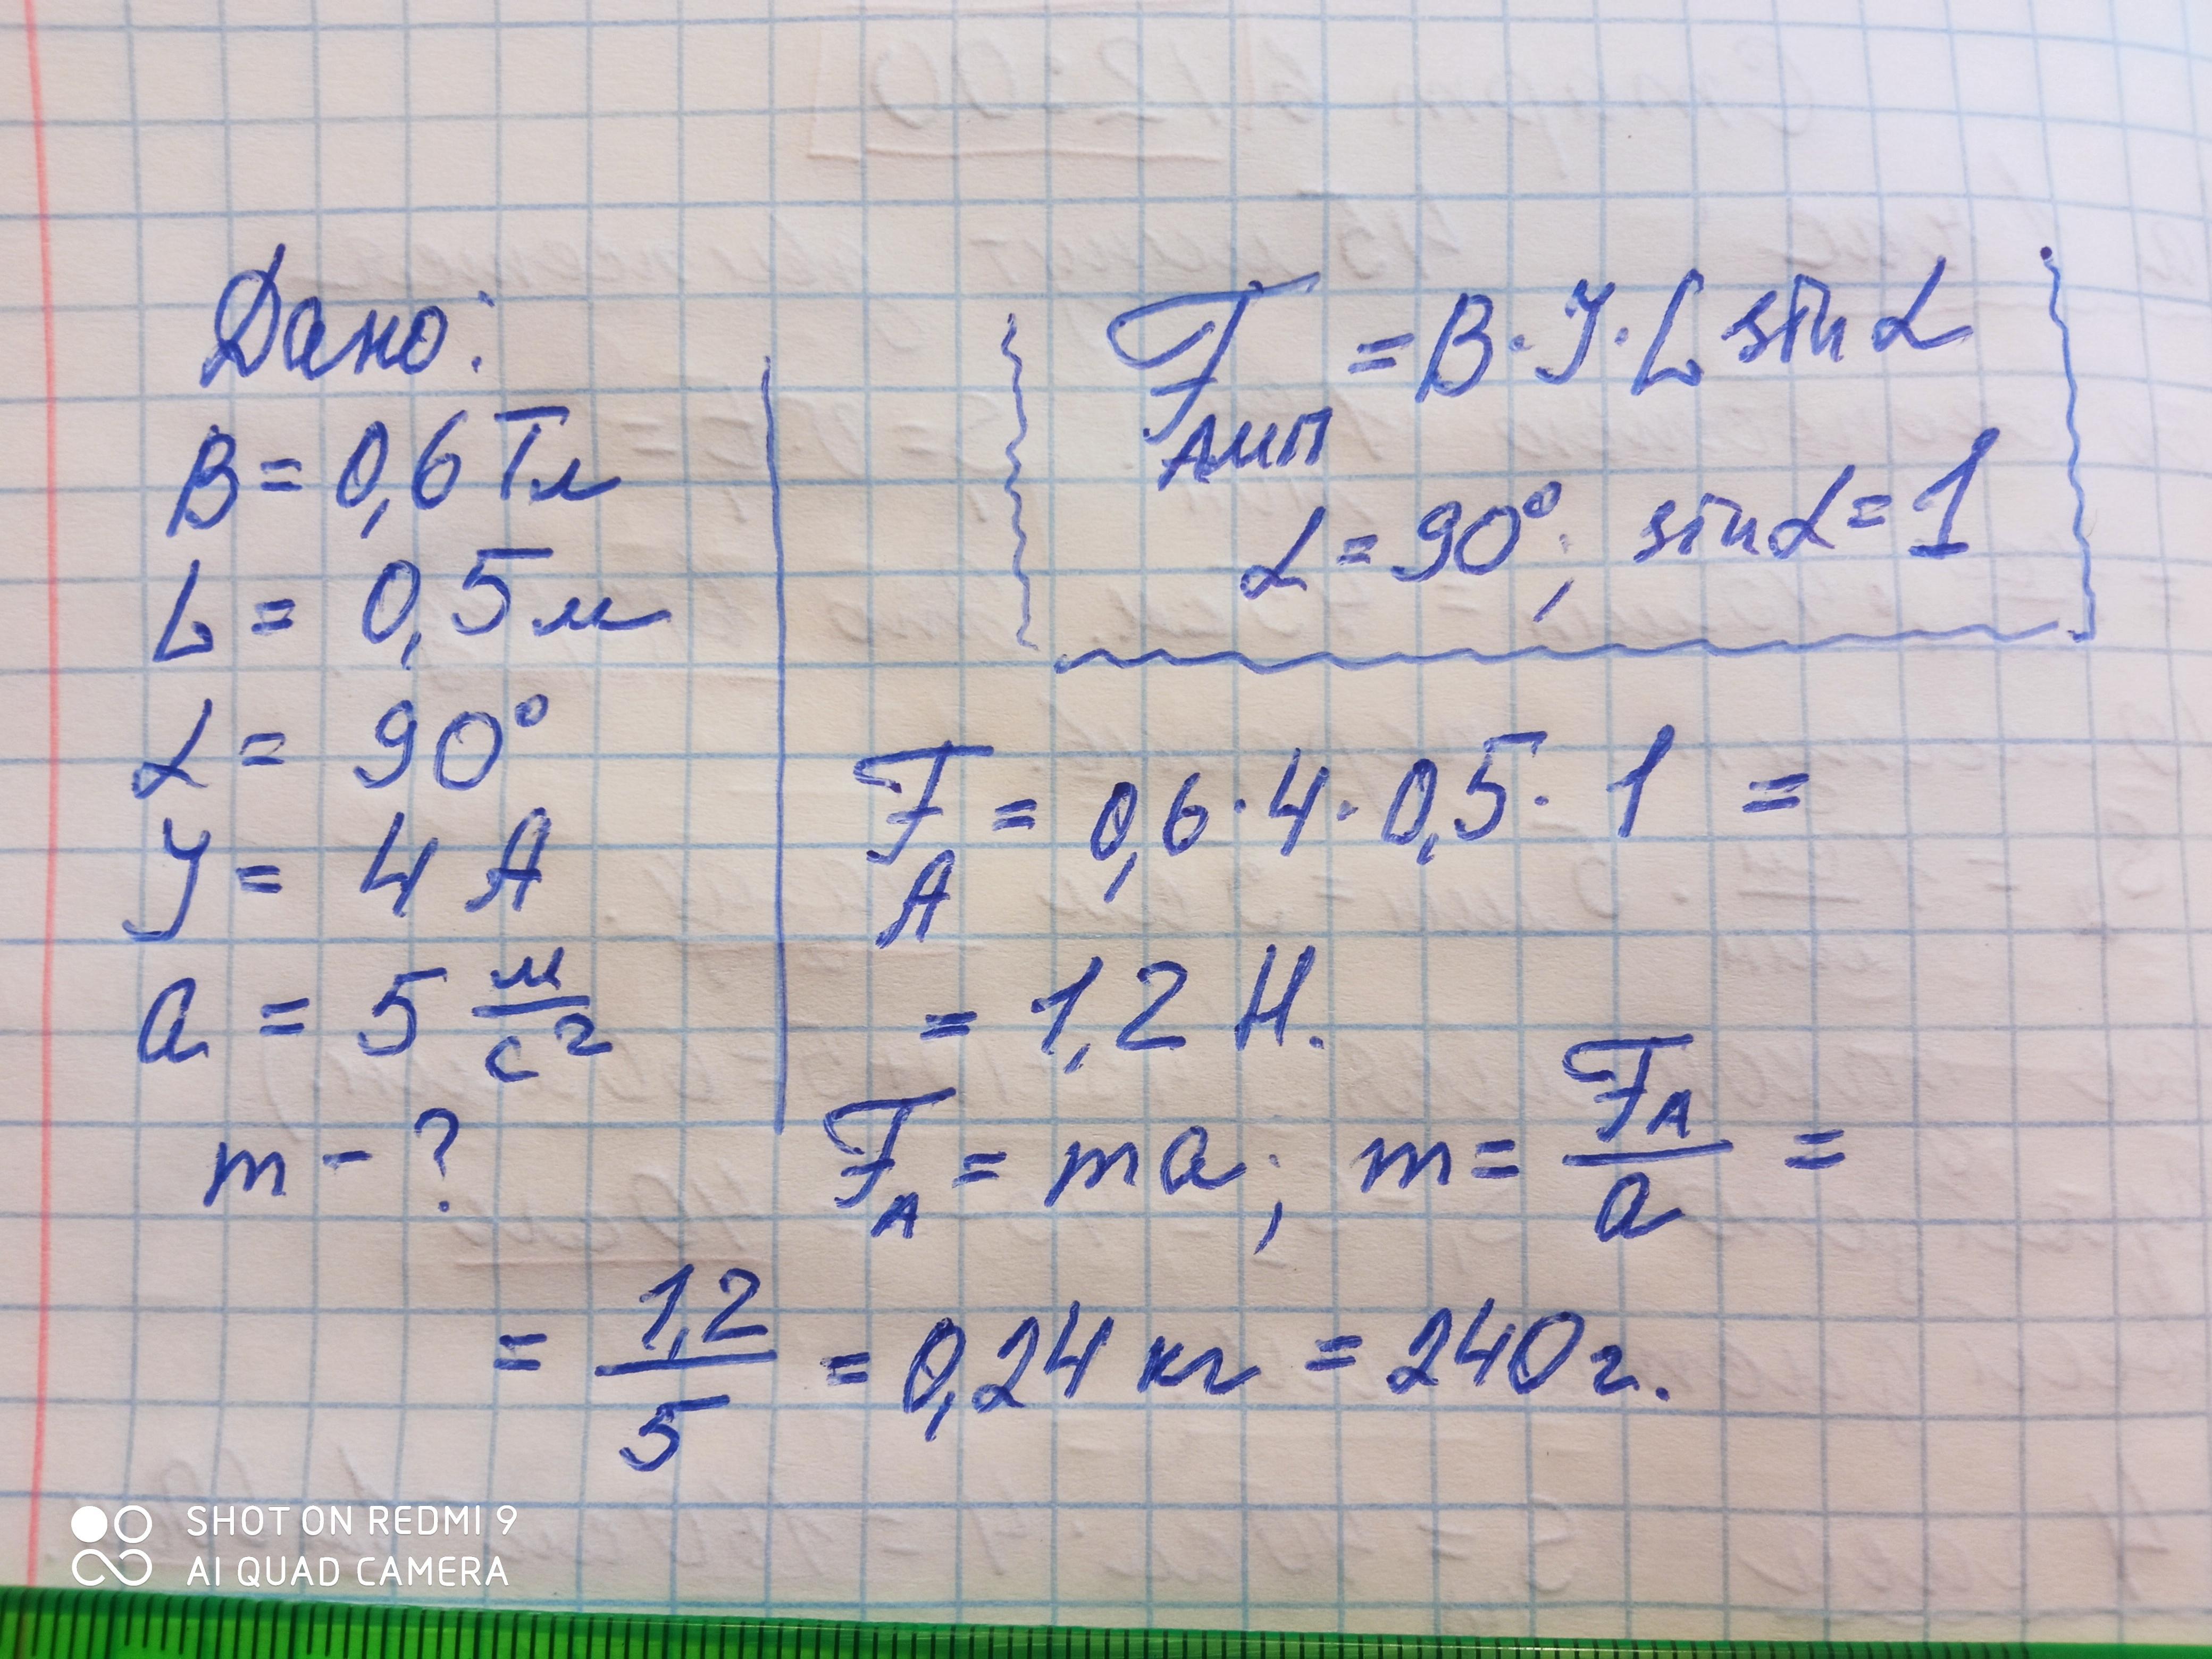 Дано:
B = 0,6 Тл
L = 0,5 м
α = 90°
J = 4 А
a = 5 м/с²
m - ?
F Амп = B · J · L sin α
α = 90°; sin α = 1
F А = 0,6 · 4 · 0,5 · 1 =
= 1,2 Н.
F А = ma; m = F А / a =
= 1,2 / 5 = 0,24 кг = 240 г.
SHOT ON REDMI 9
AI QUAD CAMERA